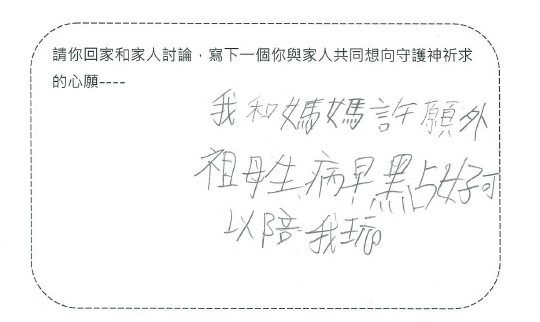 請你回家和家人討論，寫下一個你與家人共同想向守護神祈求
的心願----
我和媽媽許願外
祖母生病早點好可
以陪我玩